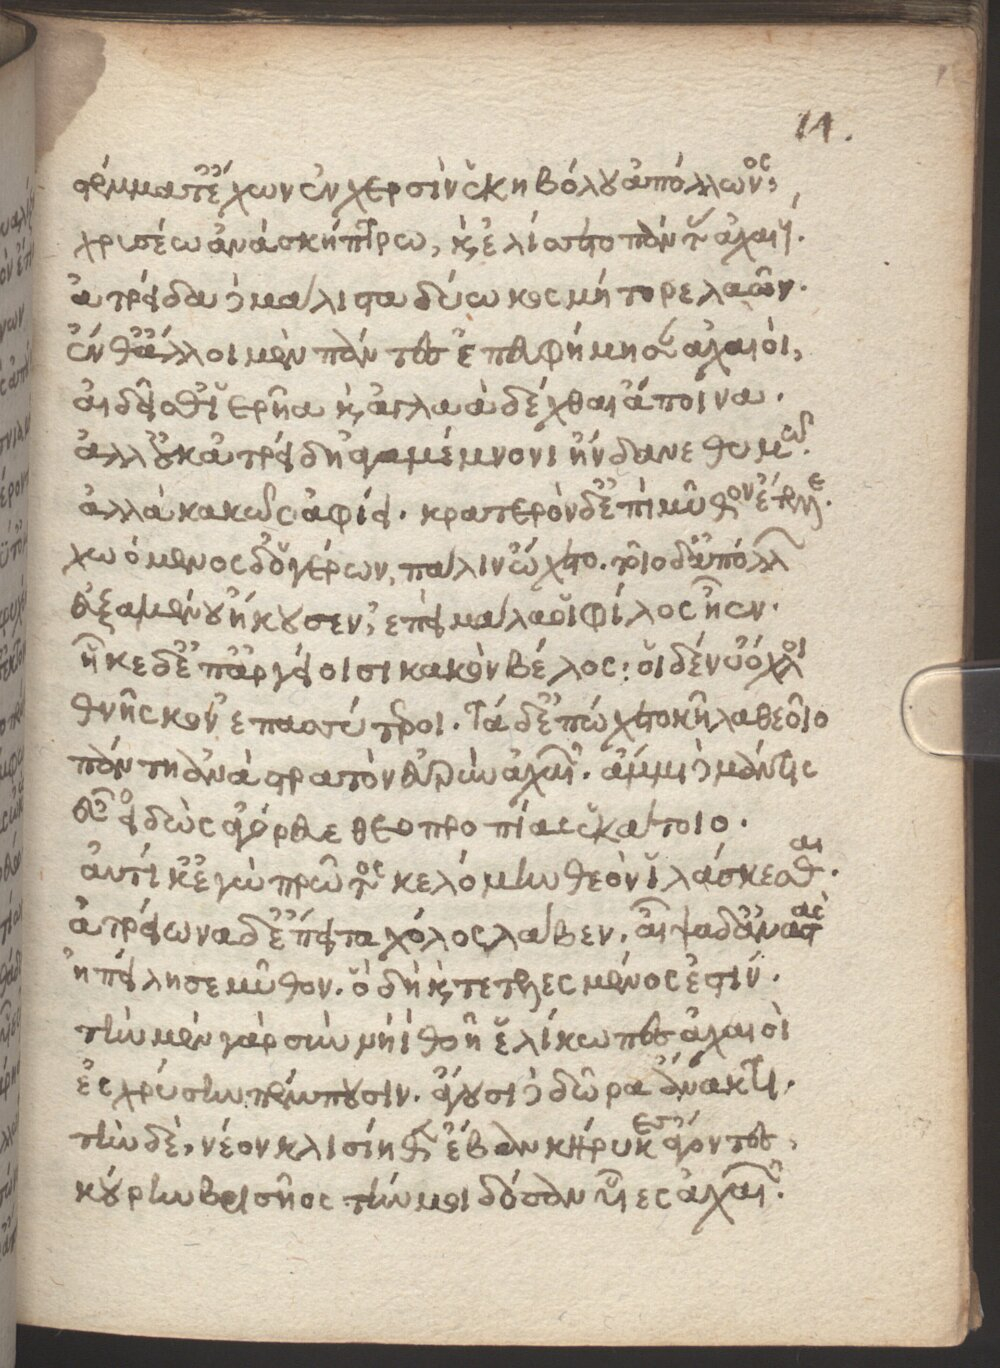 11.
στέμματ' ἔχων ἐν χερσὶν ἑκηβόλου ἀπόλλωνος,
χρυσέω ἀνὰ σκήπτρω, κ, ἐλίσσετο πάντας ἀχαιούς.
ἀτρείδα δὲ μάλιστα δύω κοσμήτορε λαῶν.
ἔνθ' ἄλλοι μὲν πάντες ἐπευφήμησαν ἀχαιοὶ,
αἰδεῖσθαί θ' ἱερῆα κ, ἀγλαὰ δέχθαι ἄποινα.
ἀλλ' οὐκ ἀτρείδη ἀγαμέμνονι ἥνδανε θυμῶ.
ἀλλὰ κακῶς ἀφίει. κρατερὸν δ' ἐπὶ μῦθον ἔτελλε.
χωόμενος δ' ὁ γέρων, πάλιν ὤχετο. τοῖο δ' ἀπόλλων
εὐξαμένου ἤκουσεν, ἐπεὶ μάλα οἱ φίλος ἦεν.
ἧκε δ' ἐπ' ἀργείοισι κακὸν βέλος: οἱ δέ νυ λαοὶ
θνῆσκον ἐπασσύτεροι. τὰ δ' ἐπώχετο κῆλα θεοῖο
πάντη ἀνὰ στρατὸν εὐρὺν ἀχαιῶν. ἄμμι δὲ μάντις
εὖ εἰδὼς ἀγόρευε θεοπροπίας ἑκάτοιο.
αὐτίκ' ἐγὼ πρῶτος κελόμην θεὸν ἱλάσκεσθαι.
ἀτρείωνα δ' ἔπειτα χόλος λάβεν. αἶψα δ' ἀναστὰς
ἠπείλησε μῦθον. ὃ δὴ κ, τετελεσμένος ἐστίν.
τὴν μὲν γὰρ σὺν νηῒ θοῆ ἑλίκωπες ἀχαιοὶ
ἐς χρύσην πέμπουσιν. ἄγουσι δὲ δῶρα ἄνακτι.
τὴν δὲ, νέον κλισίηθεν ἔβαν κήρυκες ἄγοντες,
κούρην βρισῆος τήν μοι δόσαν υἷες ἀχαιῶν.